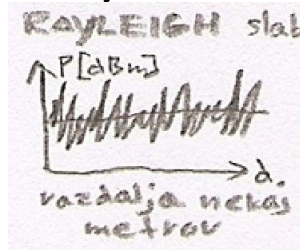 RAYLEIGH slab
P[dBm]
d
razdalja nekaj
metrov